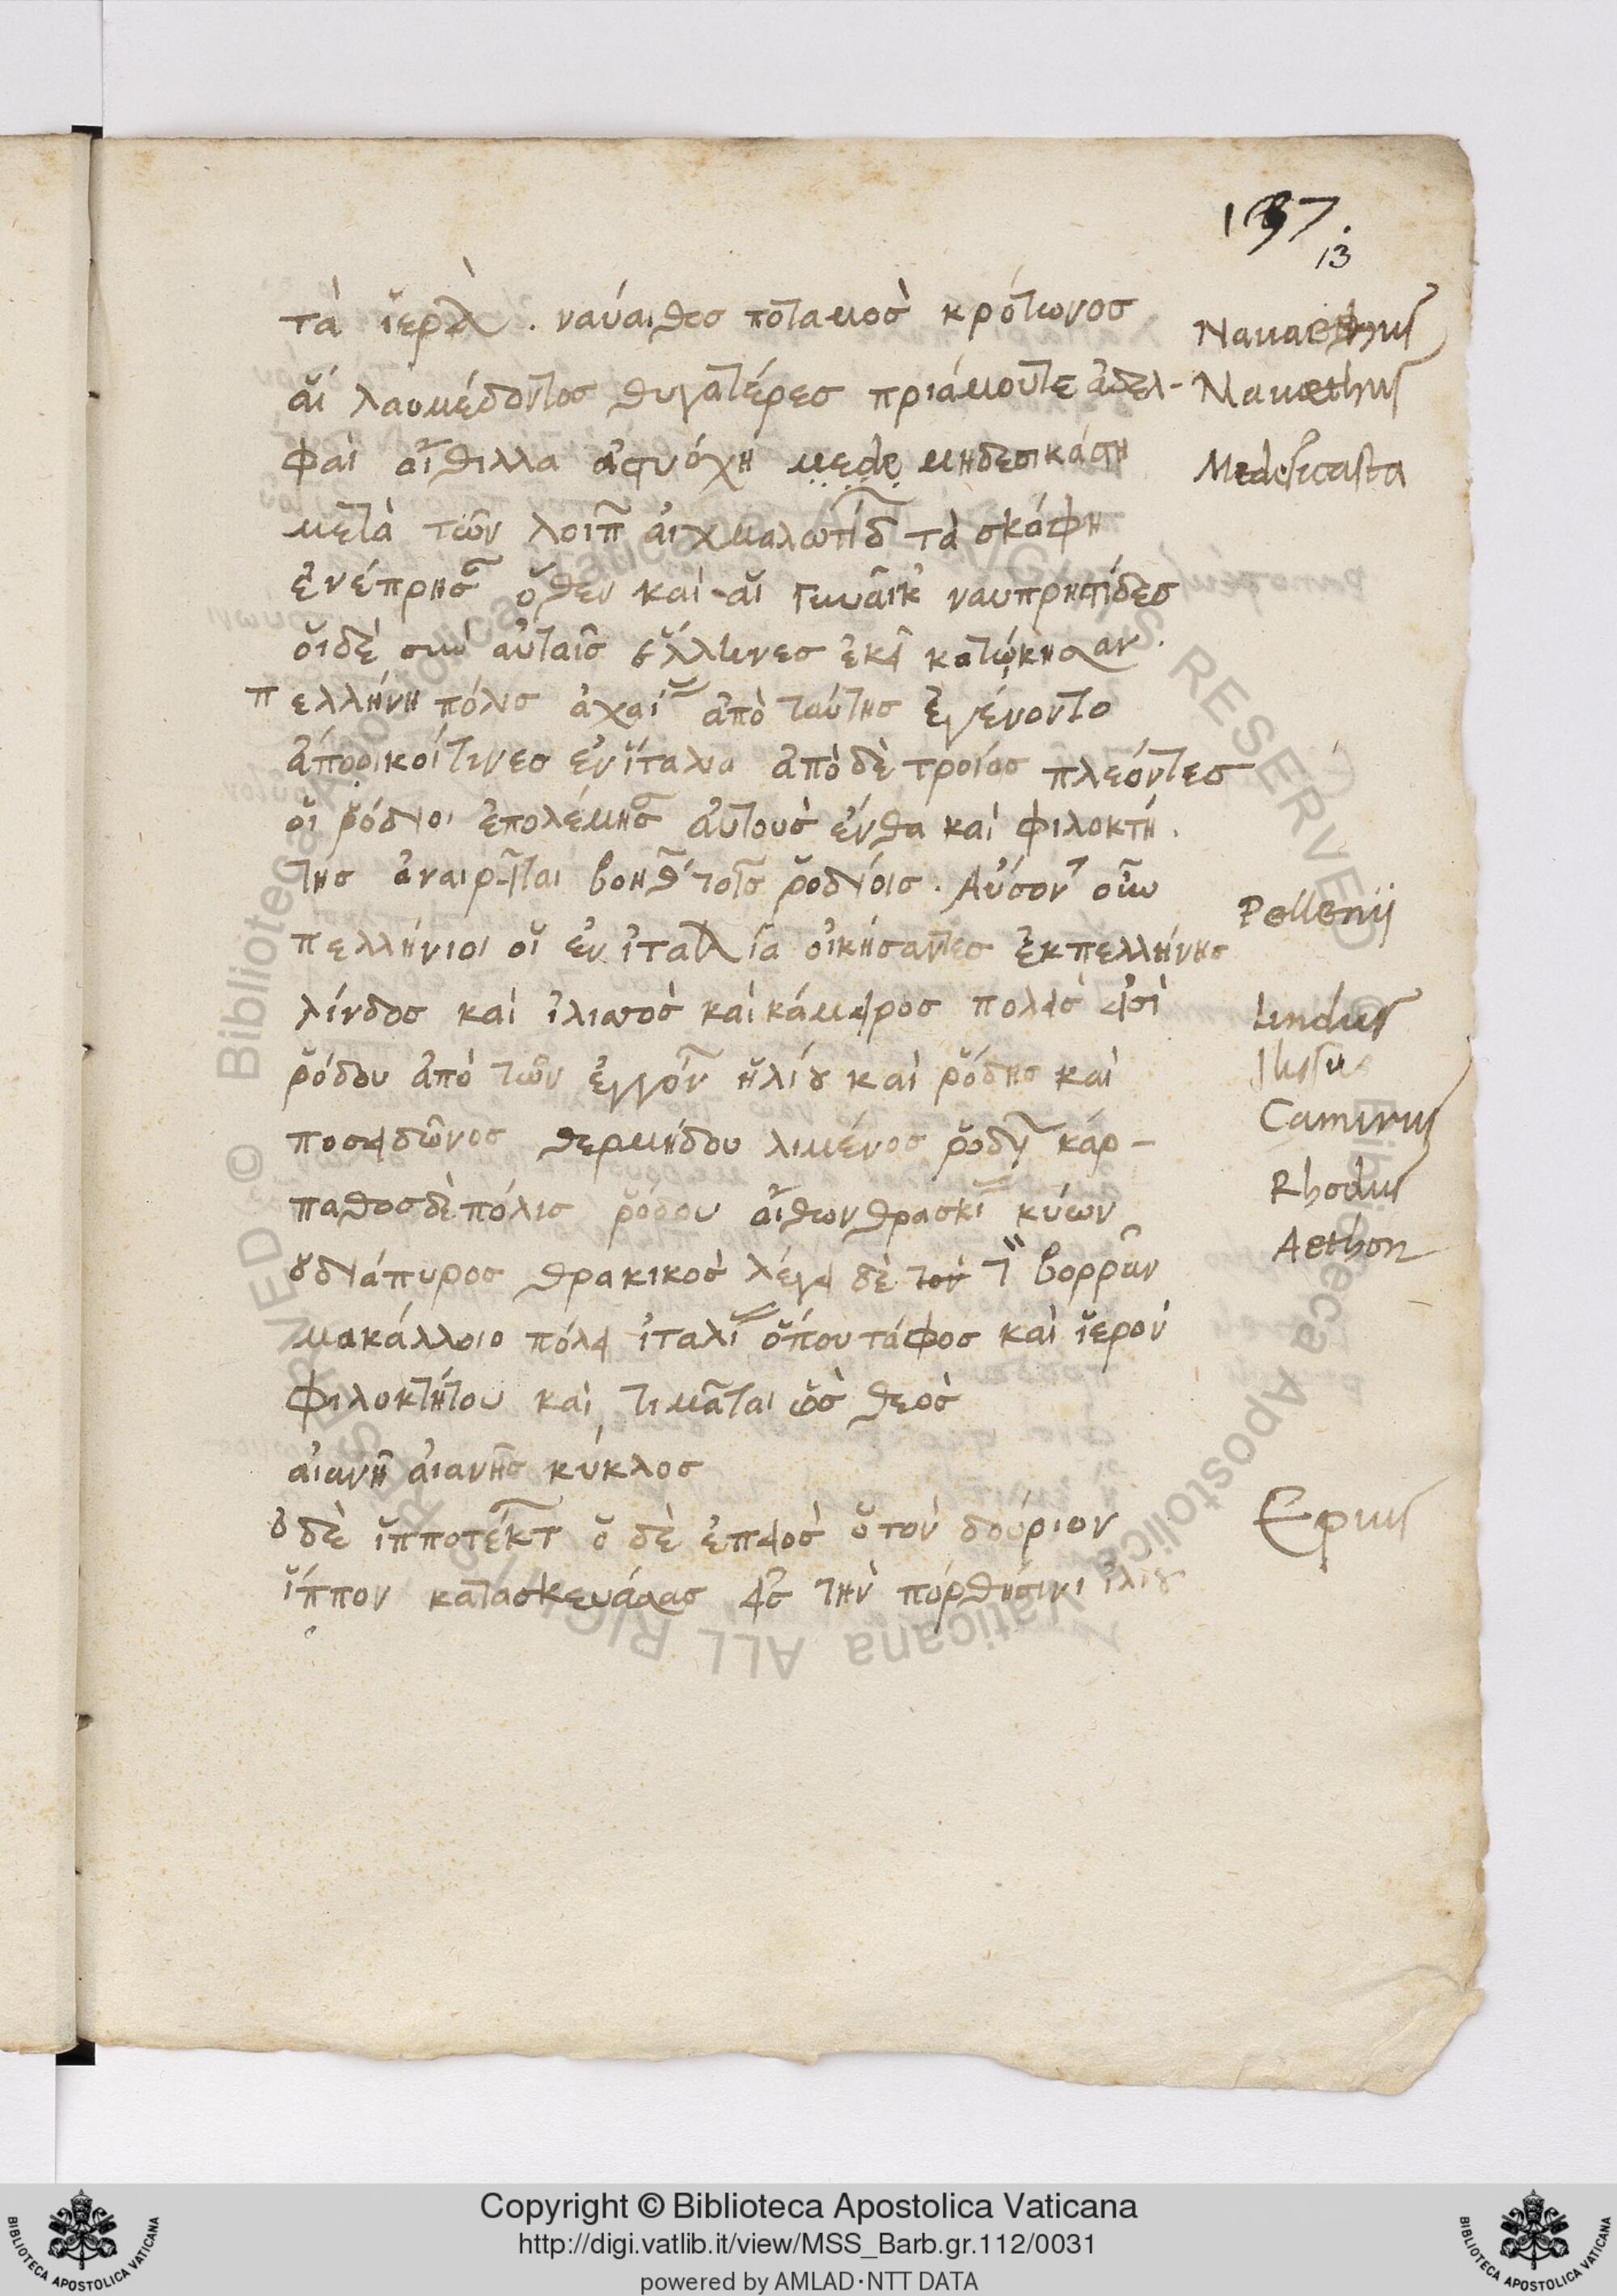 137.
13
τὰ ἱερὰ . ναύαιθος ποταμοσ κρότωνος
Nauaethus
αἱ λαομέδοντος θυγατέρες πριάμου τε ἀδελ-
Nauaethus
φαὶ αἴθιλλα ἀστυόχη μεδε μηδεσικάστη
Medesicasta
μετὰ τῶν λοιπ αἰχμαλωτίδ τὰ σκάφη
ἐνέπρησ ὅθεν καὶ αἱ γυναῖκ ναυπρηστίδες
οἱ δὲ σὺν αὐταῖς ἕλληνες ἐκεῖ κατῴκησαν .
πελλήνη πόλις ἀχαί ἀπὸ ταύτης ἐγένοντο
ἄποοικοί τινες ἐν ἰταλια ἀπὸ δὲ τροίας πλεόντες
οἱ ῥόδιοι ἐπολέμησ αὐτοὺς ἔνθα καὶ φιλοκτή .
της ἀναιρεῖται βοηθ τοῖς ῥοδίοις . Αὔσον οὖν
Pellenij
πελλήνιοι οἱ ἐν ἰταλία οἰκήσαντες ἐκ πελλήνης
λίνδος καὶ ἰλισσὸς καὶ κάμειρος πόλεις εἰσὶ
Lindus
ῥόδου ἀπὸ τῶν ἐγγόν ἡλίου καὶ ῥόδης καὶ
Ilissus
Camirus
ποσειδῶνος θερμήδου λιμένος ῥοδι κάρ-
Rhodus
παθος δὲ πόλις ῥόδου αἴθων θρασκί κύων
Aethon
ὁ διάπυρος θρακικος λέγει δὲ τον τ βορρᾶν
μακάλλοιο πόλει ἰταλί ὅπου τάφος καὶ ἱερὸν
φιλοκτήτου καὶ τιμᾶται ὡς θεὸς
αἰανῆ αἰανῆς κύκλος
ὁ δὲ ἱπποτέκτ ὁ δὲ ἐπειὸς ὁ τὸν δούριον
Epius
ἵππον κατασκευάσας εἰς τὴν πόρθησιν ἰλίου
Copyright © Biblioteca Apostolica Vaticana
http://digi.vatlib.it/view/MSS_Barb.gr.112/0031
powered by AMLAD·NTT DATA